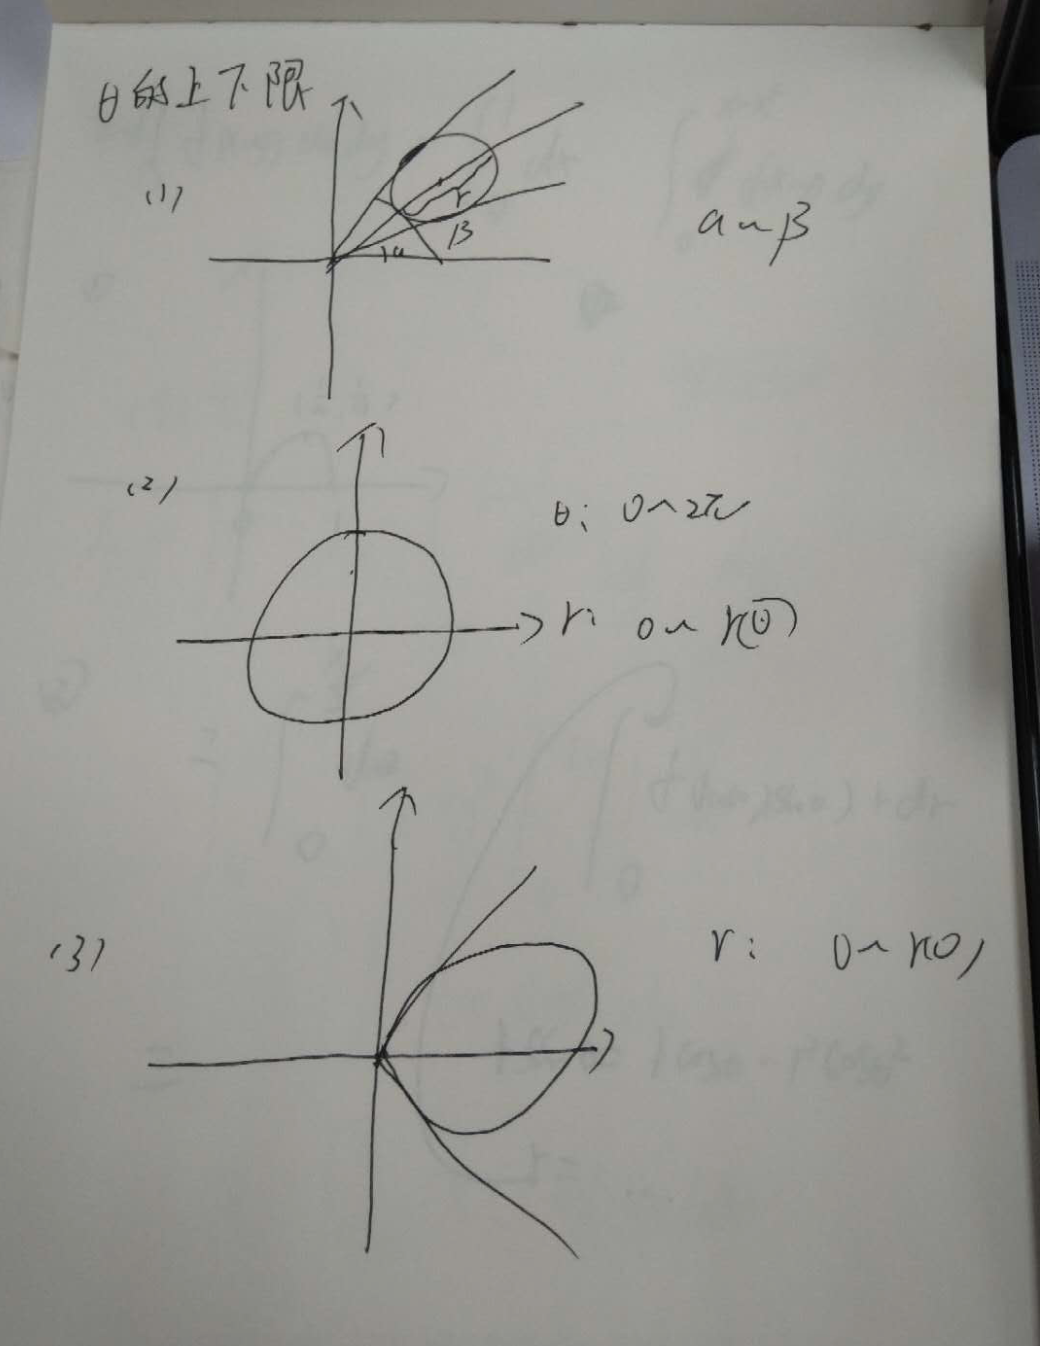 θ的上下限
(1)
r
β
α
α~β
(2)
θ: 0~2π
r: 0~r(θ)
(3)
r: 0~r(θ)